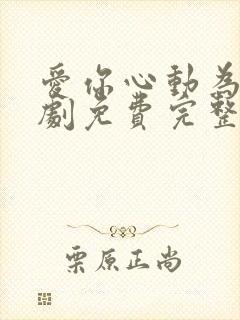 愛你心動為
劇免費完整
栗原正尚